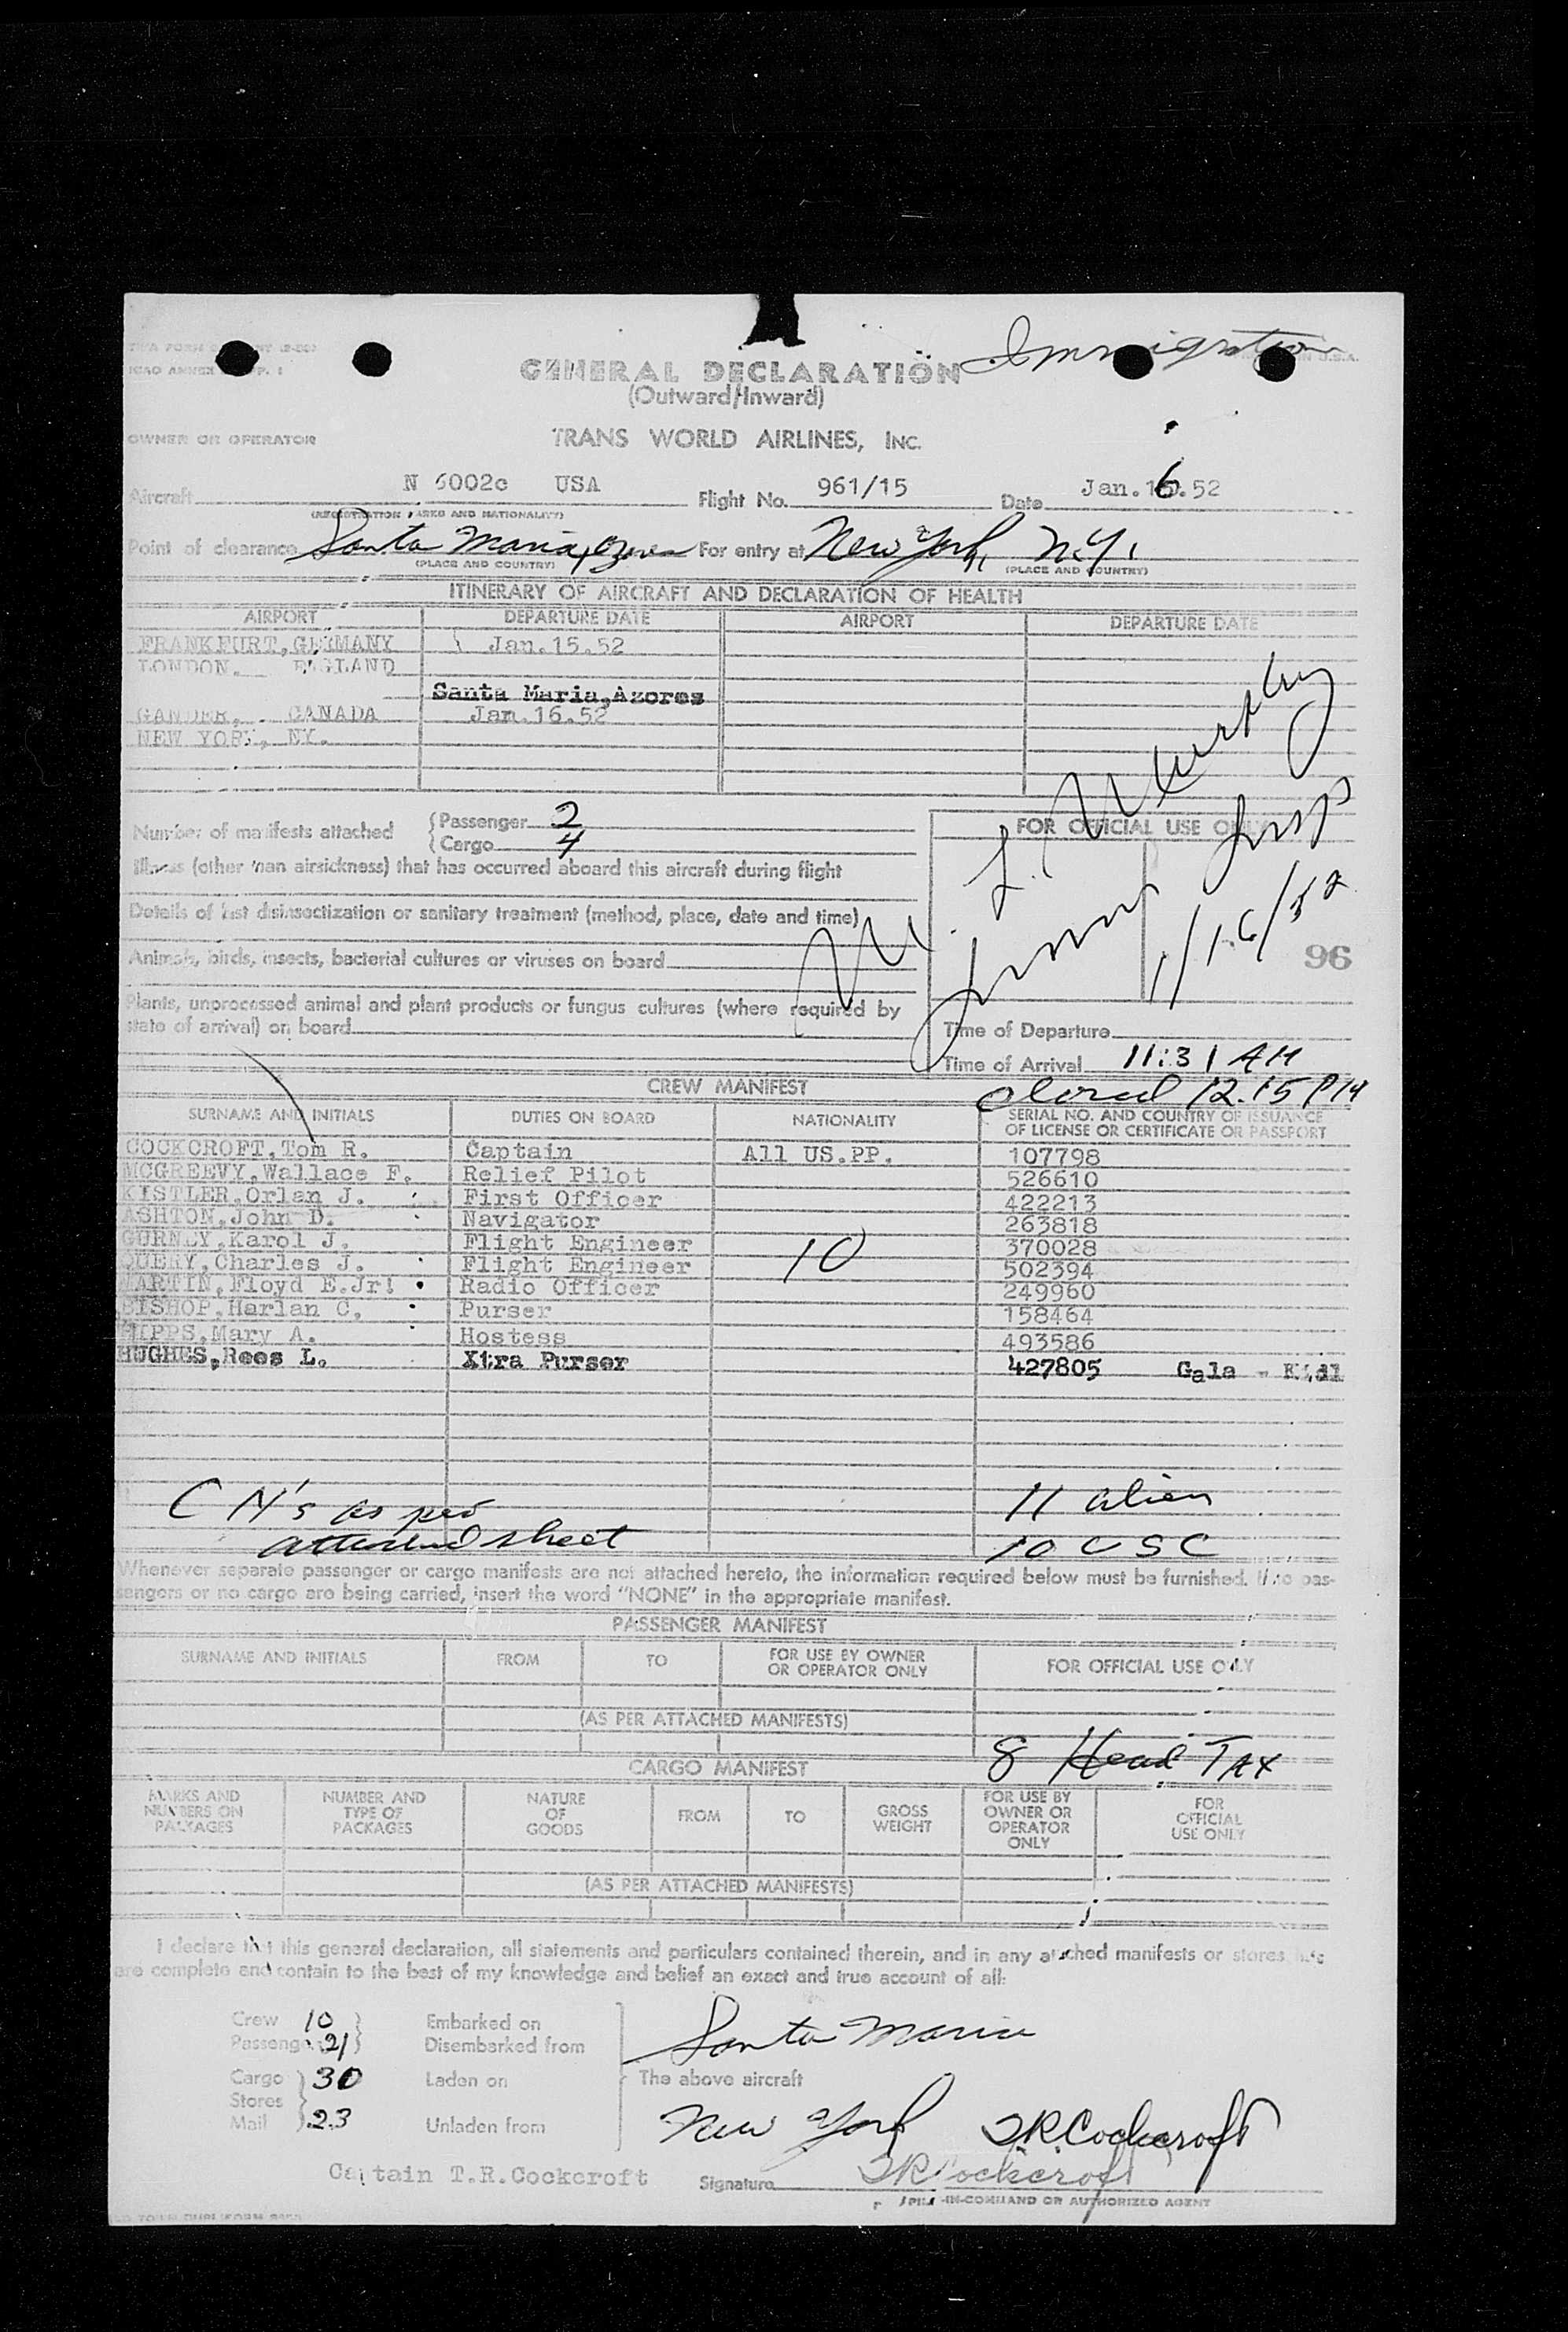 Immigration
GENERAL DECLARATION
(Outward/Inward)
OWNER OR OPERATOR TRANS WORLD AIRLINES, INC.
Aircraft N 6002c USA Flight No. 961/15 Date Jan.16.52
(REGISTRATION MARKS AND NATIONALITY)
Point of clearance Santa Maria, Azores For entry at New York, N.Y.
(PLACE AND COUNTRY) (PLACE AND COUNTRY)
ITINERARY OF AIRCRAFT AND DECLARATION OF HEALTH
AIRPORT DEPARTURE DATE AIRPORT DEPARTURE DATE
FRANKFURT, GERMANY Jan.15.52
LONDON. ENGLAND
Santa Maria,Azores
GANDER, CANADA Jan.16.52
NEW YORK, NY.
Number of manifests attached {Passenger 2
{Cargo 4
FOR OFFICIAL USE ONLY
Illness (other than airsickness) that has occurred aboard this aircraft during flight
Details of last disinsectization or sanitary treatment (method, place, date and time)
1/16/52
Animals, birds, insects, bacterial cultures or viruses on board
96
Plants, unprocessed animal and plant products or fungus cultures (where required by
state of arrival) on board
Time of Departure
Time of Arrival 11:31 AM
CREW MANIFEST
12:15 PM
SURNAME AND INITIALS DUTIES ON BOARD NATIONALITY SERIAL NO. AND COUNTRY OF ISSUANCE
OF LICENSE OR CERTIFICATE OR PASSPORT
COCKCROFT,Tom R. Captain All US.PP. 107798
MCGREEVY,Wallace F. Relief Pilot 526610
KISTLER,Orlan J. First Officer 422213
ASHTON,John D. Navigator 263818
GURNEY,Karol J. Flight Engineer 370028
QUERY,Charles J. Flight Engineer 10 502394
MARTIN,Floyd E.Jr! Radio Officer 249960
BISHOP,Harlan C. Purser 158464
HIPPS,Mary A. Hostess 493586
HUGHES,Rees L. Xtra Purser 427805 Gala -
C M's as per 11 alien
attached sheet 10 C S C
Whenever separate passenger or cargo manifests are not attached hereto, the information required below must be furnished. If no pas-
sengers or no cargo are being carried, insert the word "NONE" in the appropriate manifest.
PASSENGER MANIFEST
SURNAME AND INITIALS FROM TO FOR USE BY OWNER
OR OPERATOR ONLY FOR OFFICIAL USE ONLY
(AS PER ATTACHED MANIFESTS)
8 Head Tax
CARGO MANIFEST
MARKS AND
NUMBERS ON
PACKAGES
NUMBER AND
TYPE OF
PACKAGES
NATURE
OF
GOODS
FROM
TO
GROSS
WEIGHT
FOR USE BY
OWNER OR
OPERATOR
ONLY
FOR
OFFICIAL
USE ONLY
(AS PER ATTACHED MANIFESTS)
I declare that this general declaration, all statements and particulars contained therein, and in any attached manifests or stores lists
are complete and contain to the best of my knowledge and belief an exact and true account of all:
Crew 10 } Embarked on
Passengers 21 } Disembarked from Santa Maria
Cargo } 30 Laden on The above aircraft
Stores }
Mail } 23 Unladen from New York TRCockcroft
Captain T.R.Cockcroft Signature TRCockcroft
PILOT-IN-COMMAND OR AUTHORIZED AGENT